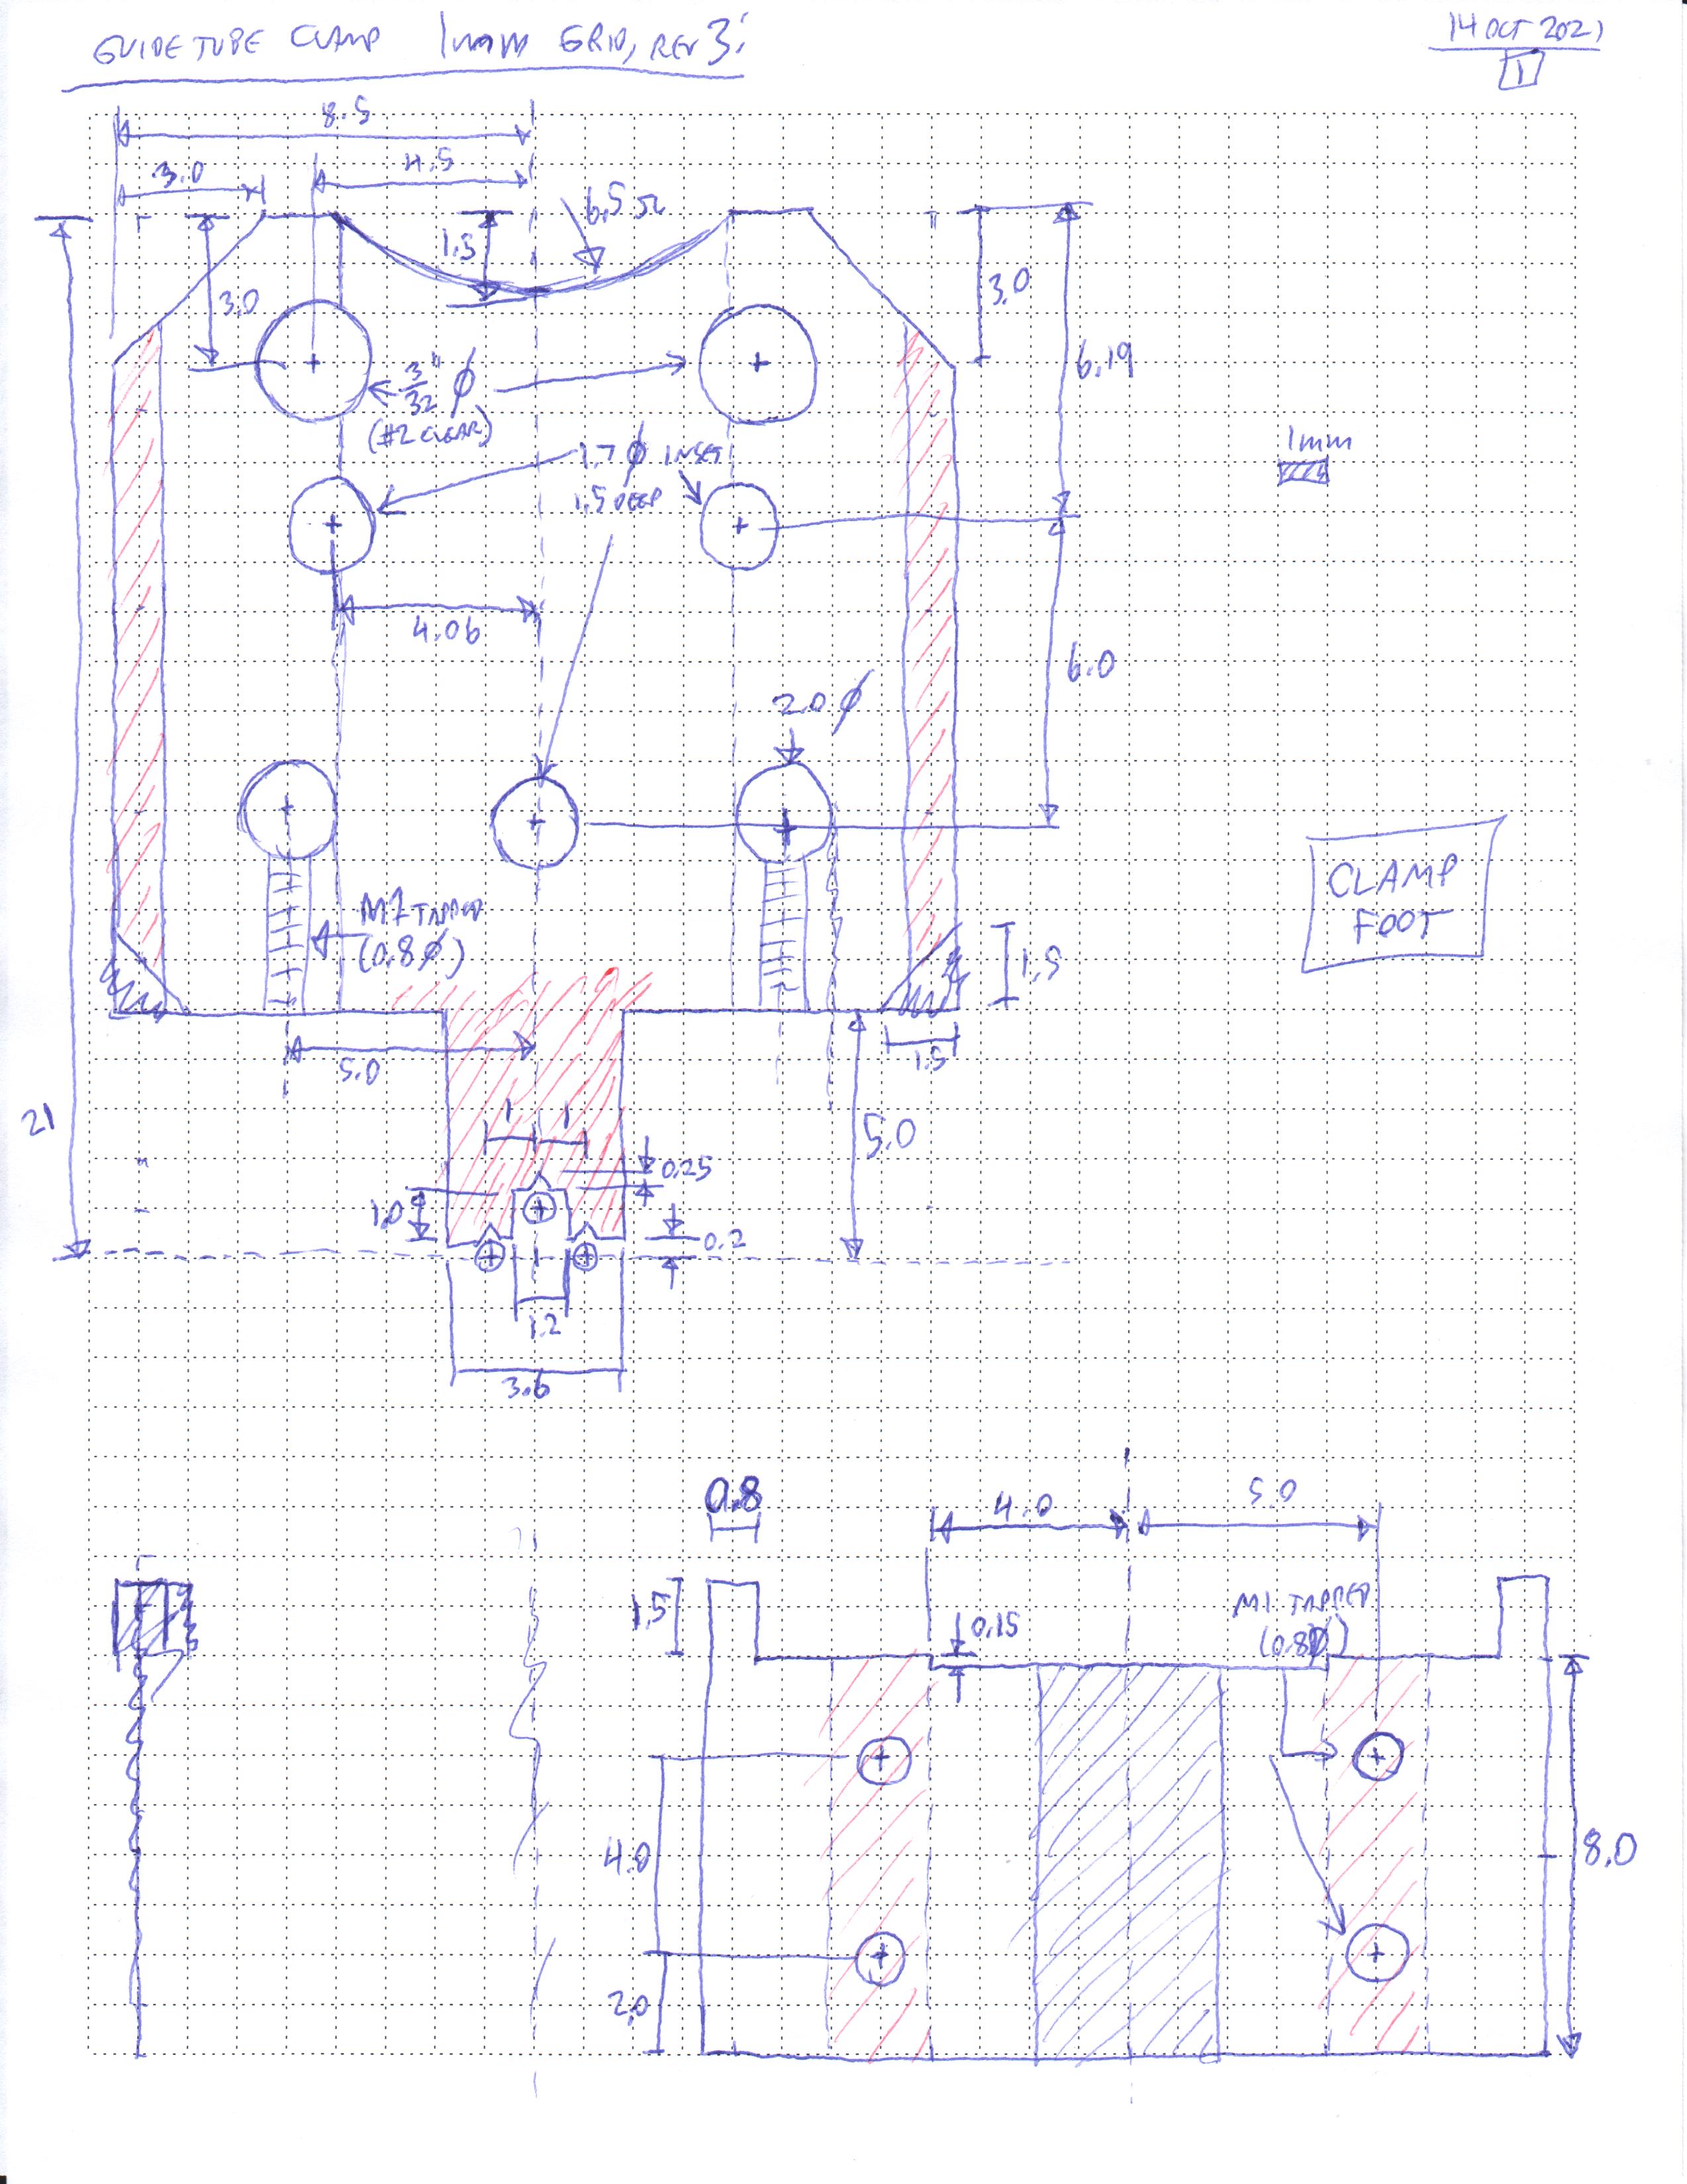 GUIDE TUBE CLAMP 1mm GRID, REV 3:
14 OCT 2021
1
8.5
3.0
4.5
6.5 r
1.5
3.0
3.0
6.19
3/32" Ø
(#2 CLEAR)
1mm
1.7 Ø INSET
1.5 DEEP
4.06
6.0
2.0 Ø
CLAMP
FOOT
M1 TAPPED
(0.8Ø)
1.5
5.0
1.5
21
1
1
5.0
0.25
1.0
0.2
1.2
3.6
0.8
4.0
5.0
1.5
0.15
M1 TAPPED
(0.8Ø)
4.0
8.0
2.0